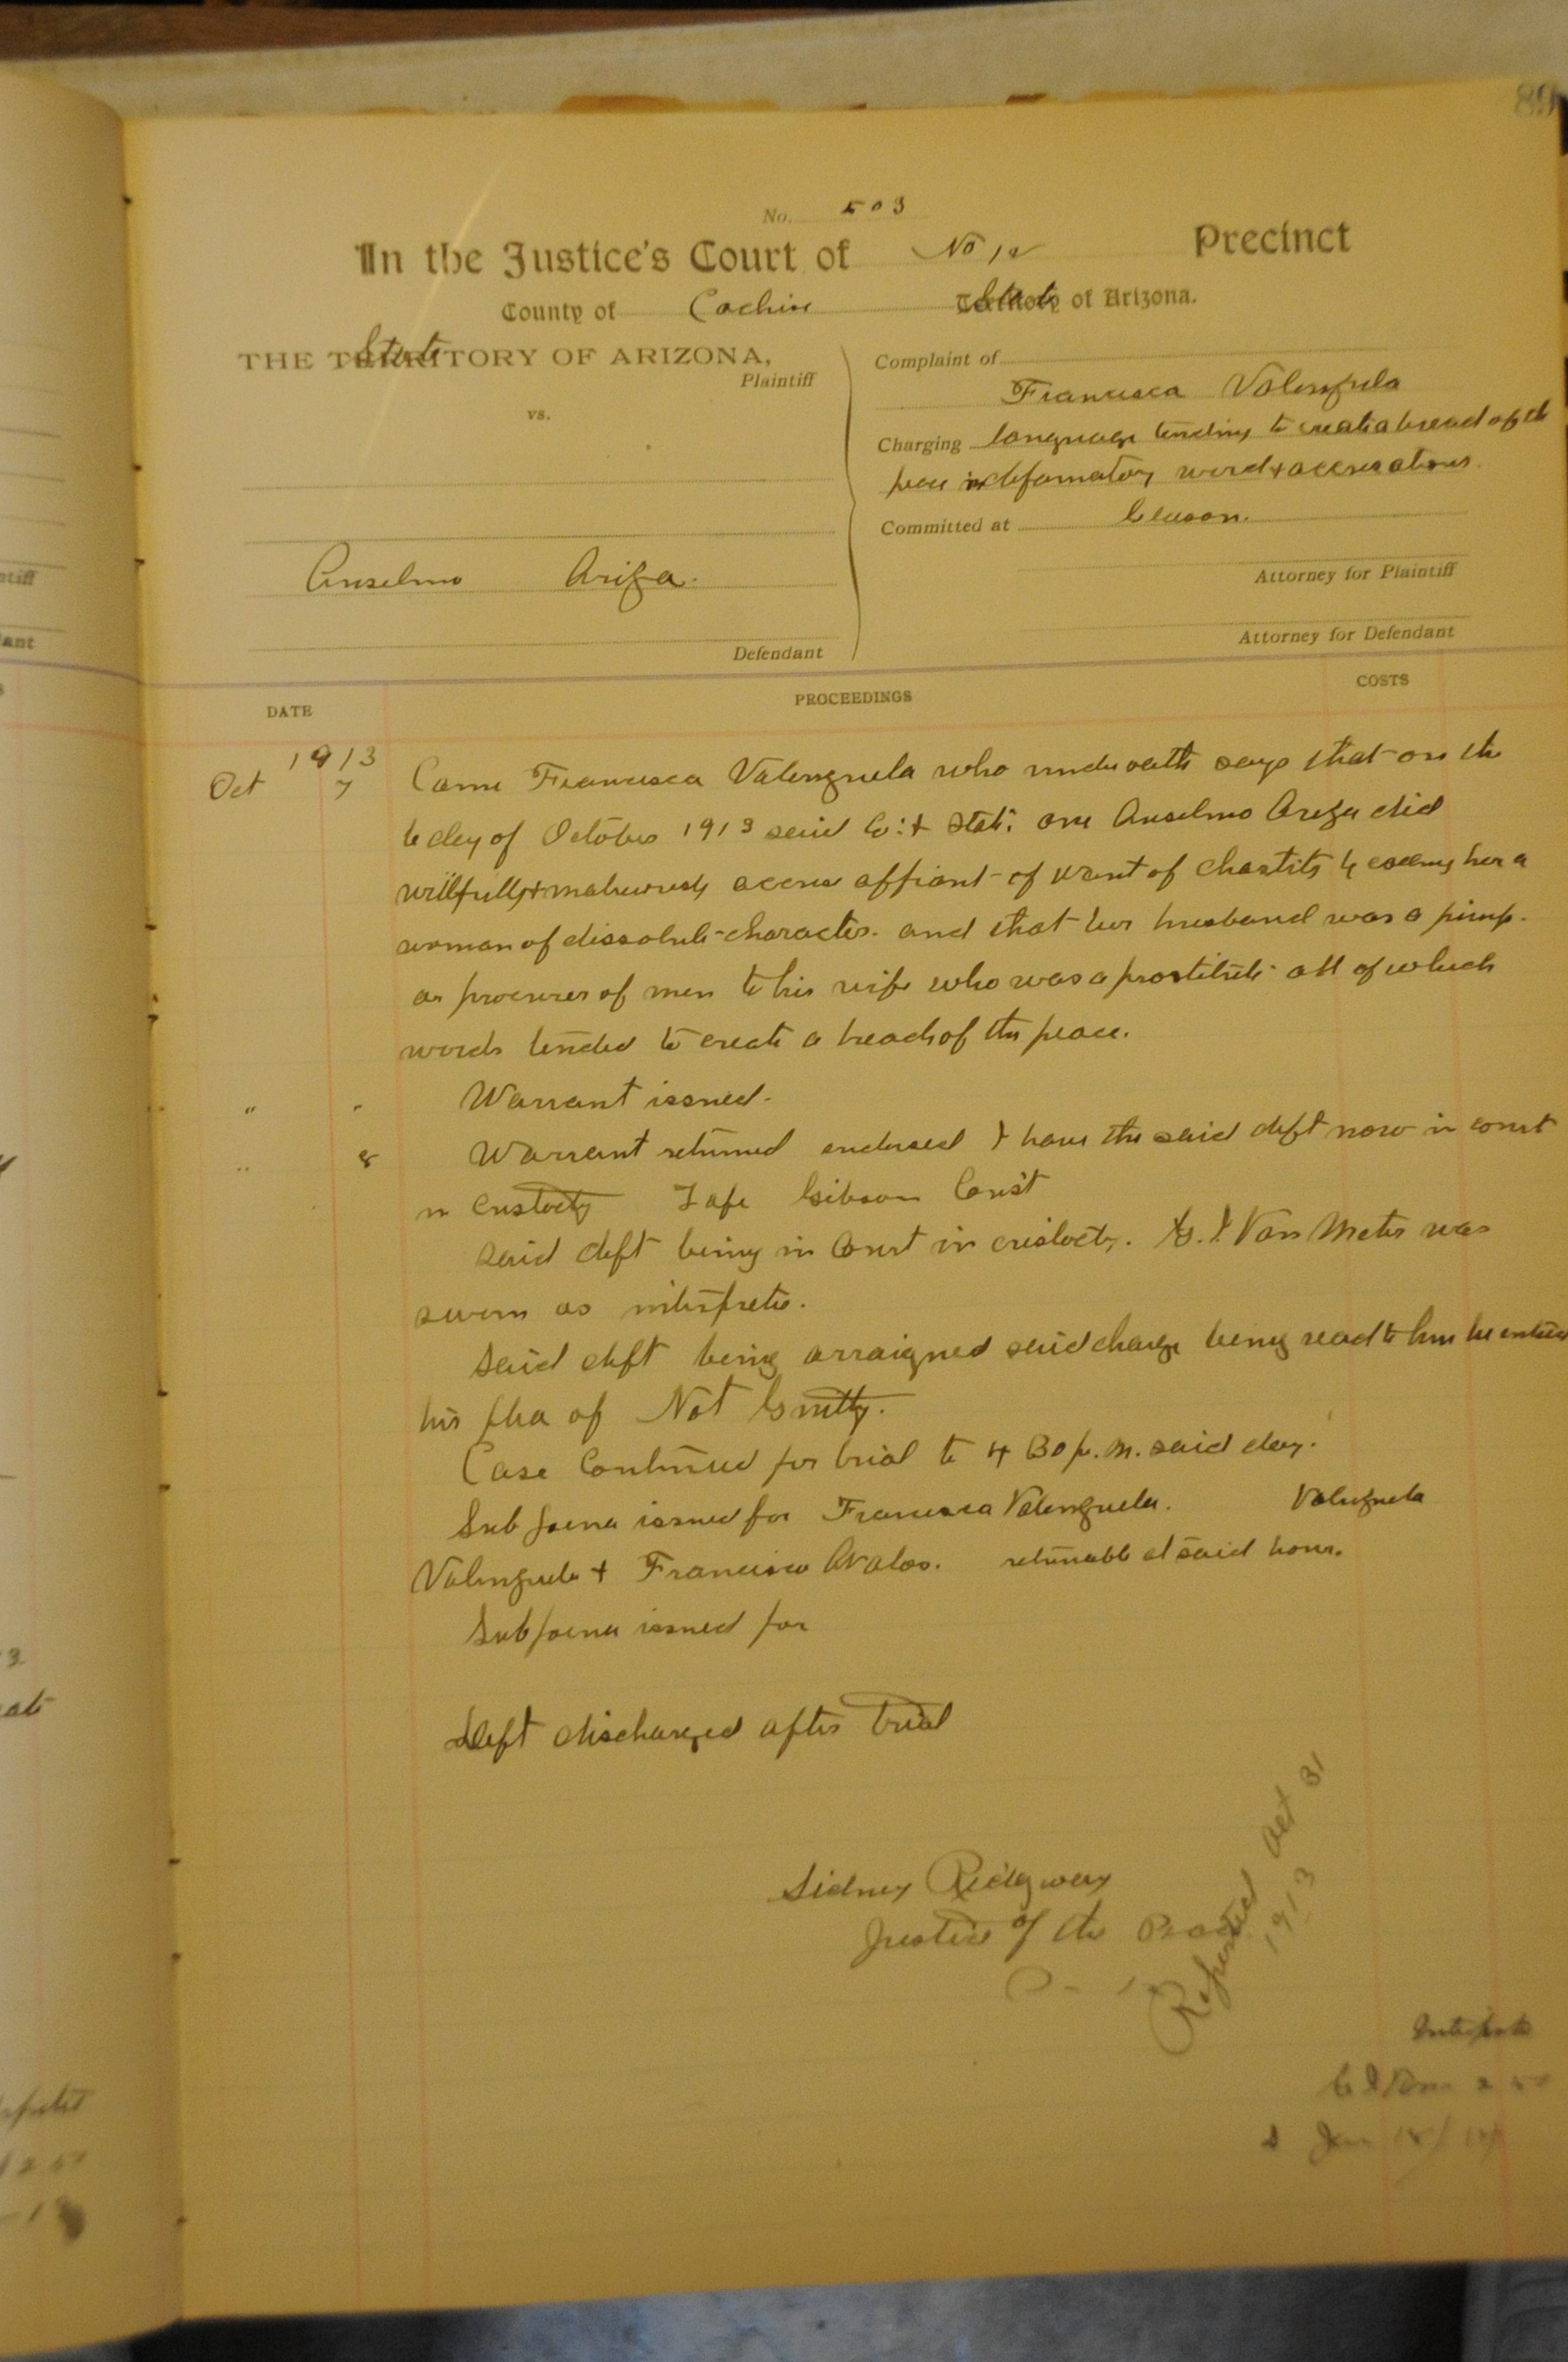 89
No. 503
In the Justice's Court of No 12 Precinct
County of Cochise State of Arizona.
State
THE TERRITORY OF ARIZONA,
Plaintiff
vs.
Anselmo Ariza.
Defendant
Complaint of
Francisca Valenzuela
Charging language tending to create a breach of the
peace defamatory words & accusations.
Committed at Gleason.
Attorney for Plaintiff
Attorney for Defendant
DATE PROCEEDINGS COSTS
1913
Oct 7 Came Francisca Valenzuela who under oath says that on the
6 day of October 1913 said Co. & State one Anselmo Ariza did
willfully & maliciously accuse affiant of want of chastity by calling her a
woman of dissolute character. and that her husband was a pimp.
or procurer of men to his wife who was a prostitute all of which
words tended to create a breach of the peace.
" " Warrant issued.
" 8 Warrant returned endorsed I have the said deft now in court
in custody Lafe Gibson Const
Said deft being in Court in custody. G. I Van Meter was
sworn as interpreter.
Said deft being arraigned said charge being read to him he entered
his plea of Not Guilty.
Case Continued for trial to 4 30 p.m. said day.
Subpoena issued for Francisca Valenzuela. Valenzuela
Valenzuela & Francisco Avalos. returnable at said hour.
Subpoena issued for
Deft discharged after trial
Sidney Ridgway
Justice of the Peace
Reported Oct 31
1913